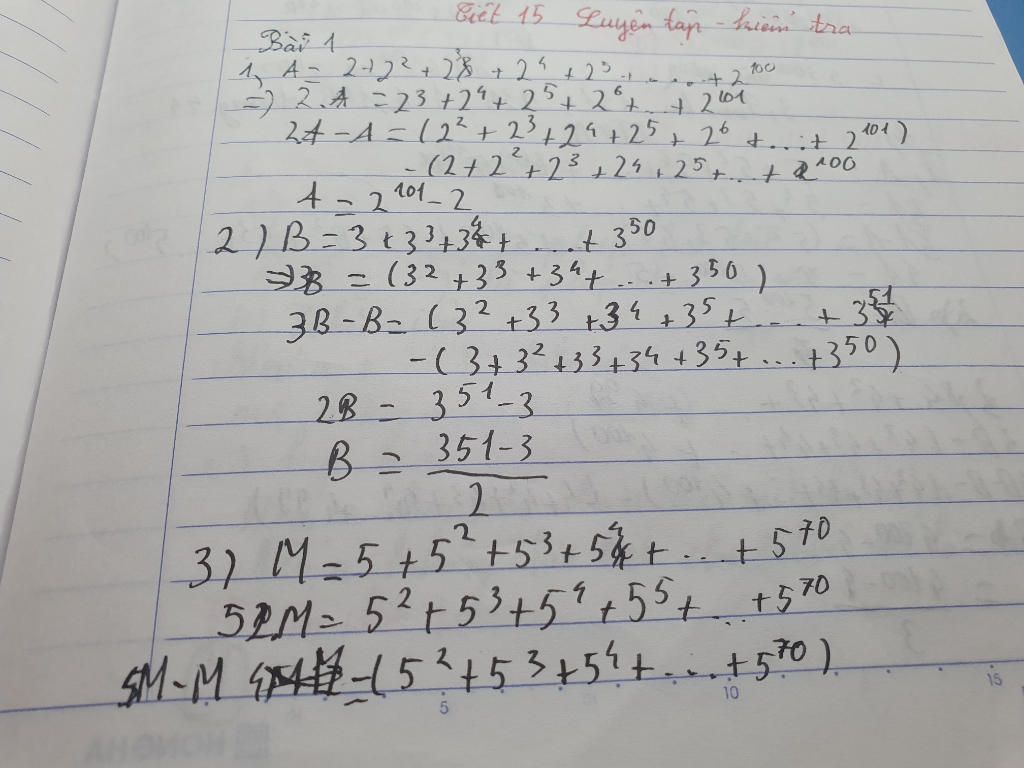 Tiết 15 Luyện tập - kiểm tra
Bài 1
1, A = 2 + 2² + 2³ + 2⁴ + 2⁵ + ..... + 2¹⁰⁰
=) 2.A = 23 + 2⁴ + 2⁵ + 2⁶ + ... + 2¹⁰¹
2A - A = (2² + 2³ + 2⁴ + 2⁵ + 2⁶ + ... + 2¹⁰¹)
- (2 + 2² + 2³ + 2⁴ + 2⁵ + ... + 2¹⁰⁰
A = 2¹⁰¹ - 2
2) B = 3 + 3³ + 3⁴ + .... + 3⁵⁰
=> 3B = (3² + 3³ + 3⁴ + ... + 3⁵⁰)
3B - B = (3² + 3³ + 3⁴ + 3⁵ + .... + 3⁵¹
- (3 + 3² + 3³ + 3⁴ + 3⁵ + ... + 3⁵⁰)
2B = 3⁵¹ - 3
B = 351 - 3
2
3) M = 5 + 5² + 5³ + 5⁴ + ... + 5⁷⁰
5M = 5² + 5³ + 5⁴ + 5⁵ + ... + 5⁷⁰
5M - M = - (5² + 5³ + 5⁴ + .... + 5⁷⁰)
5 10 15
HONG HA